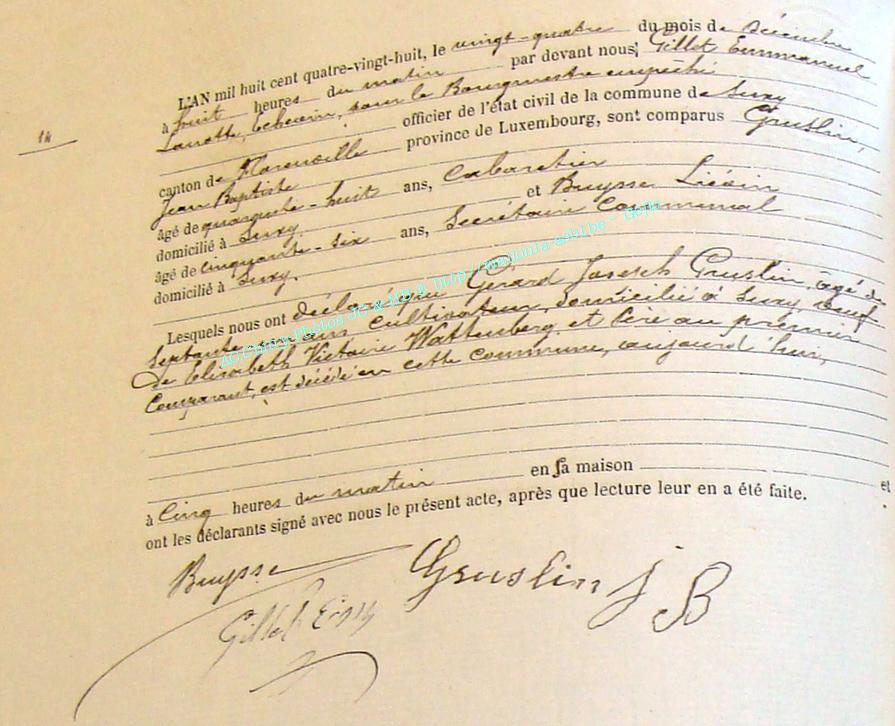 14
L'AN mil huit cent quatre-vingt-huit, le vingt-quatre du mois de Décembre
à huit heures du matin par devant nous, Gillet Emmanuel
Echevin, pour le Bourgmestre empêché
officier de l'état civil de la commune de Suxy
canton de Florenville province de Luxembourg, sont comparus Gruslin,
Jean Baptiste
âgé de quarante-huit ans, Cabaretier
domicilié à Suxy. et Buysse Liévin
âgé de cinquante-six ans, Secrétaire Communal
domicilié à Suxy.
Lesquels nous ont déclaré que Gérard Joseph Gruslin, âgé de
septante ans cultivateur, domicilié à Suxy, veuf
de Elisabeth Victoire Wattenberg, et Père au premier
Comparant, est décédé en cette commune, aujourd'hui,
à Cinq heures du matin en sa maison et
ont les déclarants signé avec nous le présent acte, après que lecture leur en a été faite.
Buysse Gruslin J B
Gillet Em